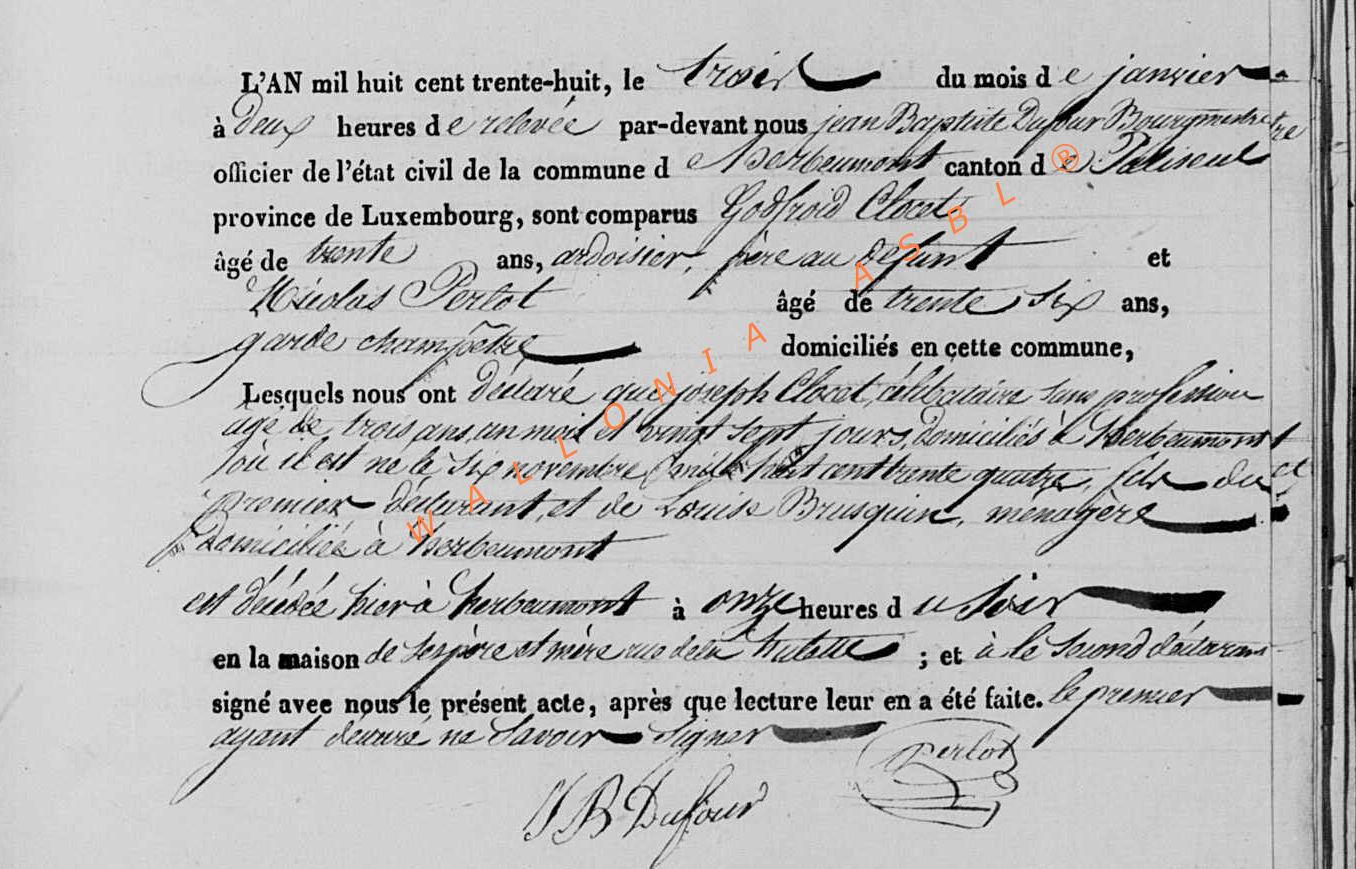 L'AN mil huit cent trente-huit, le trois du mois de janvier
à deux heures de relevée par-devant nous jean Baptiste Dufour Bourgmestre
officier de l'état civil de la commune de herbeumont canton de Paliseul
province de Luxembourg, sont comparus Godfroid Clocet
âgé de trente ans, ardoisier, père au défunt et
Nicolas Perlot âgé de trente six ans,
garde champêtre domiciliés en cette commune,
Lesquels nous ont déclaré que joseph Clocet, célibataire sans profession
agé de trois ans, un mois et vingt sept jours, domiciliés à herbeumont
où il est né le six novembre mille huit cent trente quatre, fils du
premier déclarant, et de Louise Brusquin, ménagère
domiciliée à herbeumont
est décédée hier à herbeumont à onze heures du soir
en la maison de ses père et mère rue de la hulette ; et à le second déclarant
signé avec nous le présent acte, après que lecture leur en a été faite. le premier
ayant déclaré ne savoir signer
Perlot
JB Dufour
WALLONIA ASBL ®